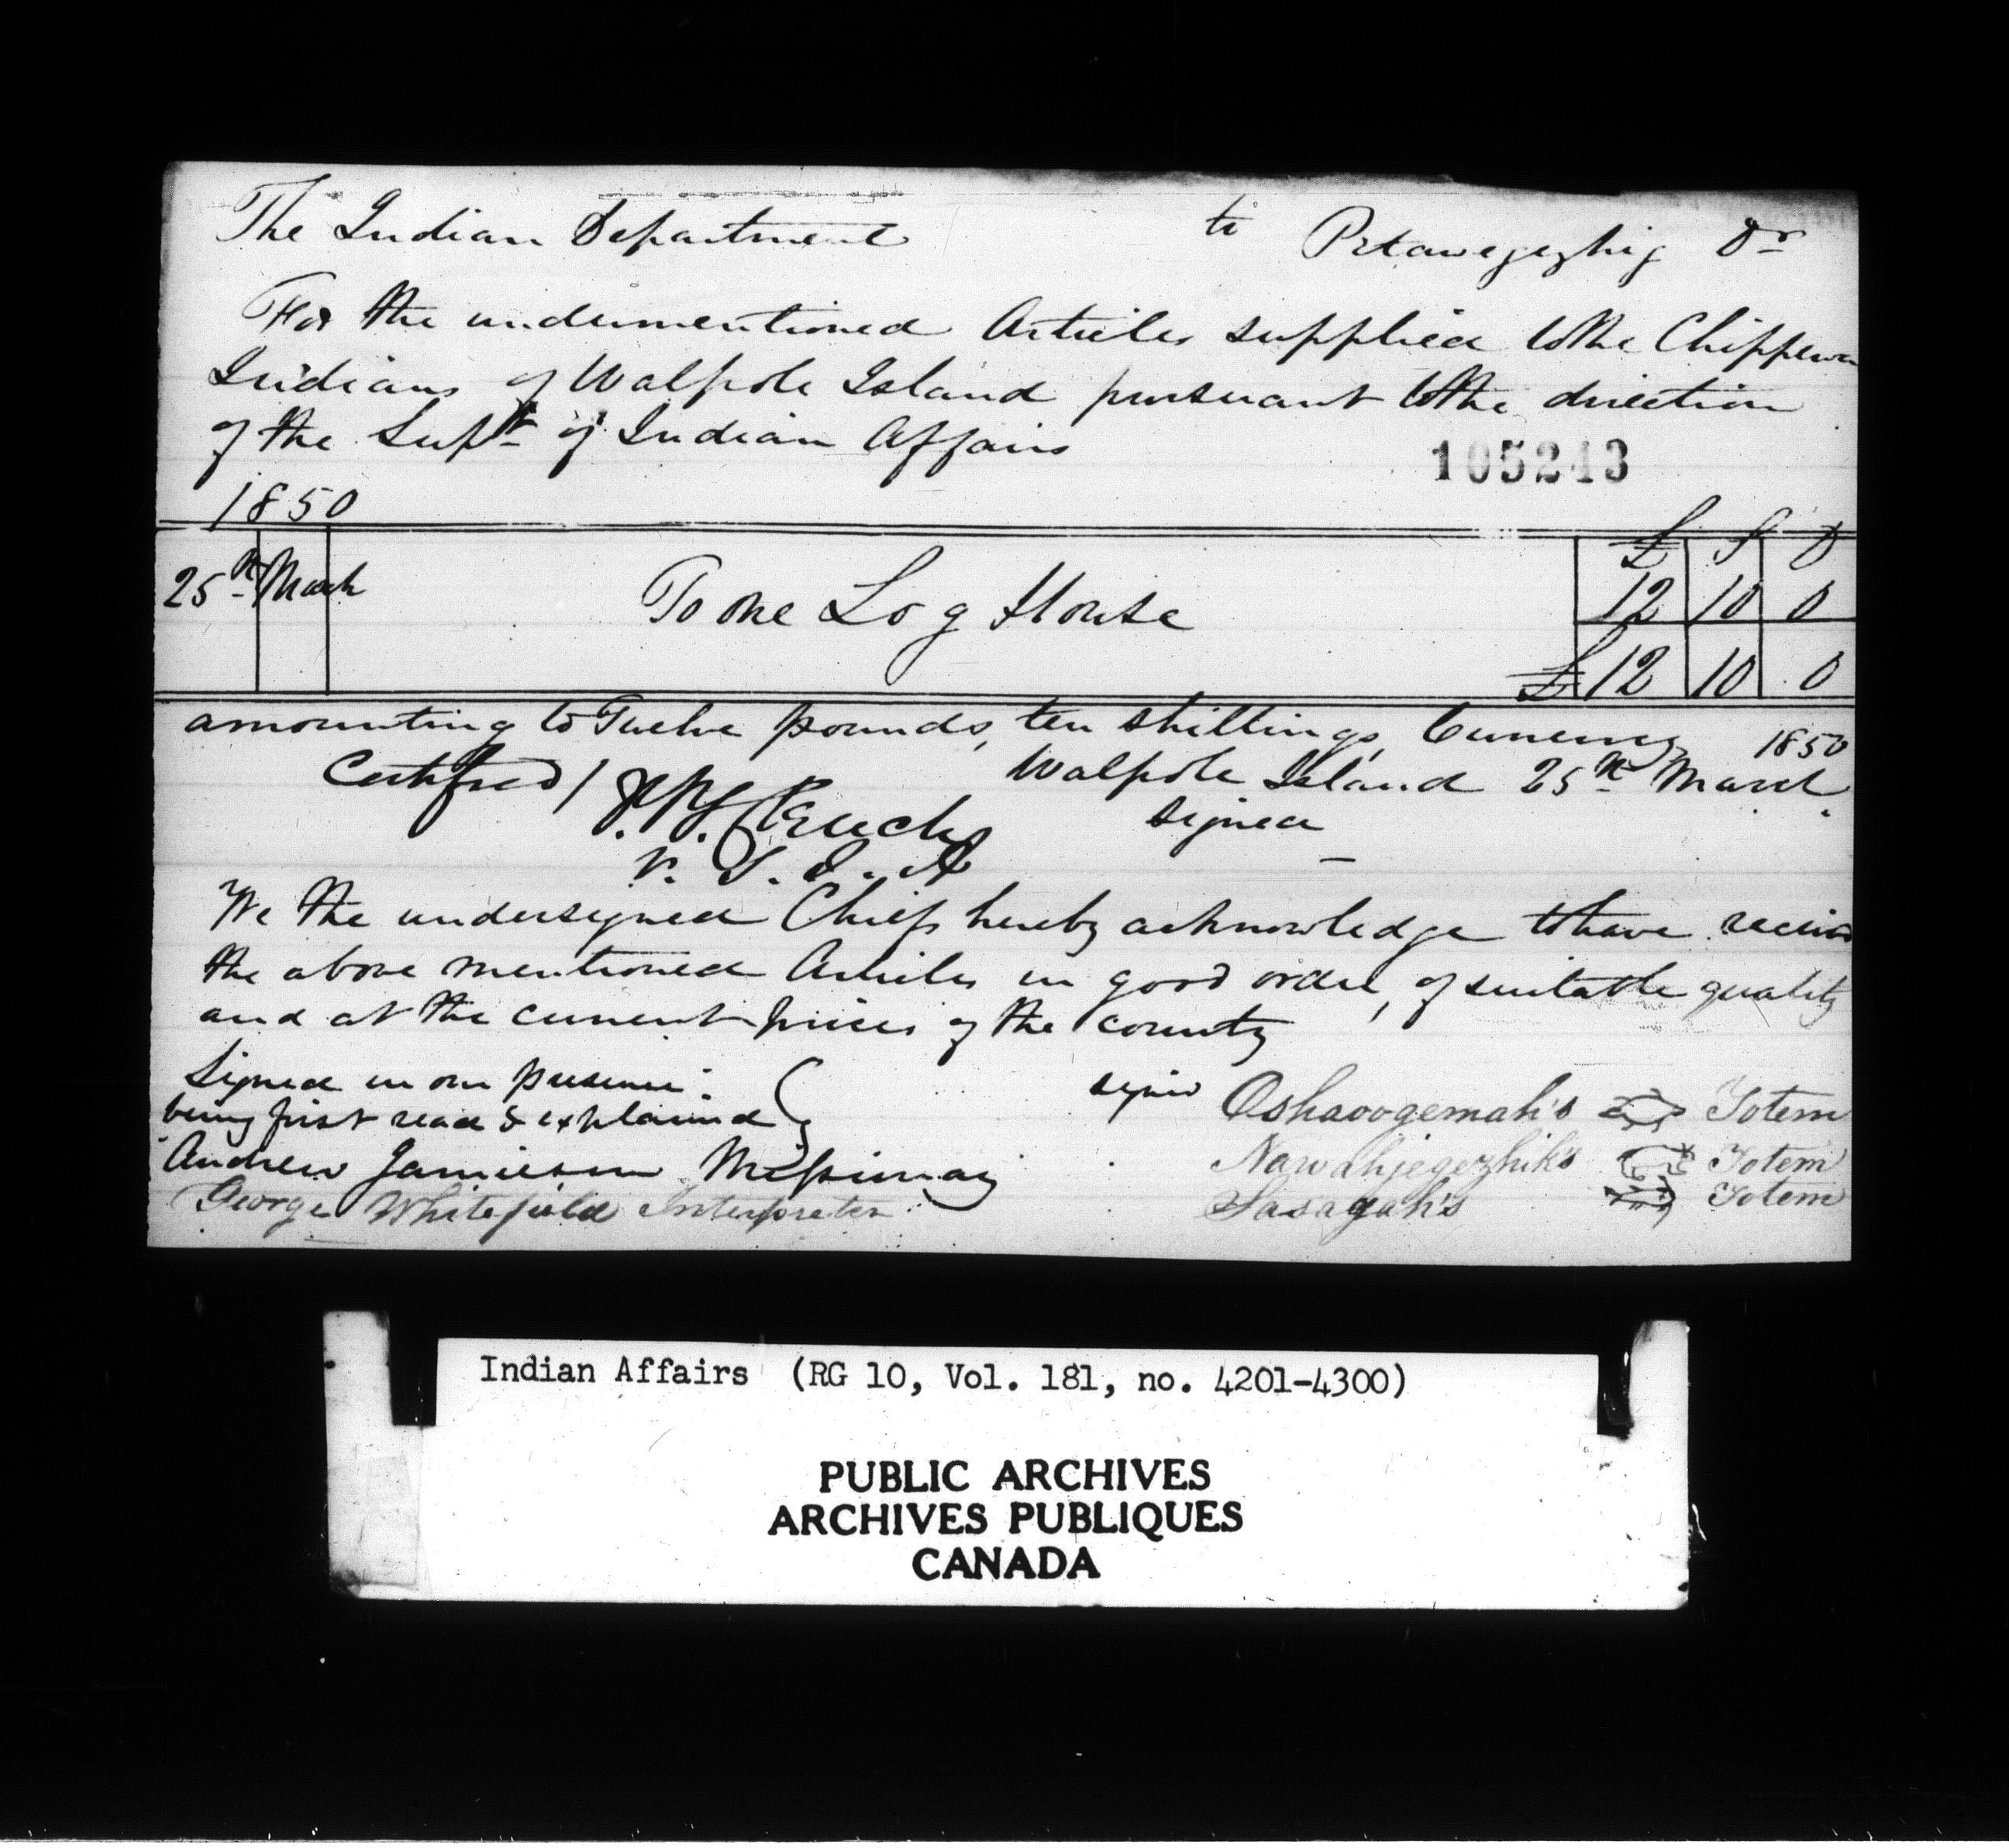 The Indian Department to Petawegezhig Dr
For the undermentioned Articles supplied to the Chippewa
Indians of Walpole Island pursuant to the direction
of the Supt of Indian Affairs
105243
1850
£ S D
25th March To one Log House 12 10 0
£ 12 10 0
amounting to Twelve pounds, ten shillings, Currency
Certified / Walpole Island 25th March 1850
signed
V. S. I. A
We the undersigned Chiefs hereby acknowledge to have received
the above mentioned Articles in good order, of suitable quality
and at the current prices of the county
Signed in our presence
being first read & explained
signed Oshaoogemah's Totem
Andrew Jamieson Missionary
Nawahjegezhik's Totem
George Whitefield Interpreter
Sasagah's Totem
Indian Affairs (RG 10, Vol. 181, no. 4201-4300)
PUBLIC ARCHIVES
ARCHIVES PUBLIQUES
CANADA